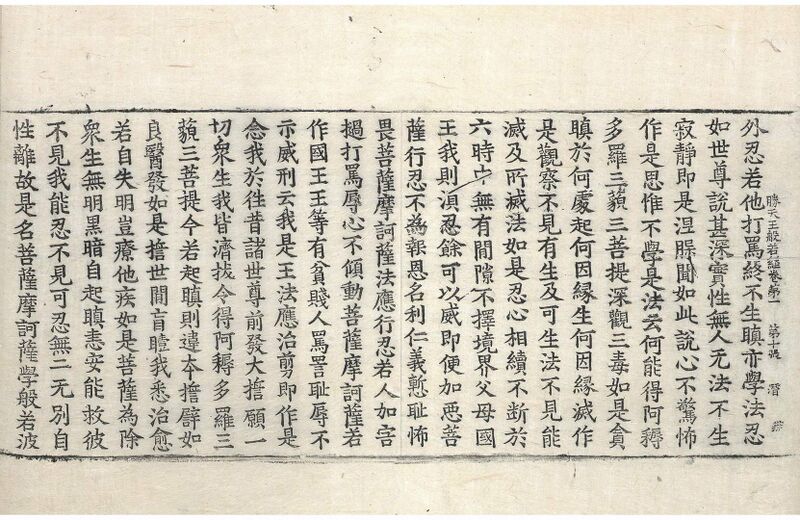 勝天王般若經卷第一 第十張 潛
外忍若他打罵終不生瞋亦學法忍
如世尊說甚深實性無人无法不生
寂靜即是涅槃聞如此說心不驚怖
作是思惟不學是法云何能得阿耨
多羅三藐三菩提深觀三毒如是貪
瞋於何處起何因緣生何因緣滅作
是觀察不見有生及可生法不見能
滅及所滅法如是忍心相續不斷於
六時中無有間隙不擇境界父母國
王我則須忍餘可以威即便加惡菩
薩行忍不為報恩名利仁義慙耻怖
畏菩薩摩訶薩法應行忍若人加害
撾打罵辱心不傾動菩薩摩訶薩若
作國王王等有貧賤人罵詈耻辱不
示威刑云我是王法應治剪即作是
念我於往昔諸世尊前發大擔願一
切衆生我皆濟拔令得阿耨多羅三
藐三菩提今若起瞋則違本擔譬如
良醫發如是擔世間盲瞻我悉治愈
若自失明豈療他疾如是菩薩為除
衆生無明黑暗自起瞋恚安能救彼
不見我能忍不見可忍無二无別自
性離故是名菩薩摩訶薩學般若波